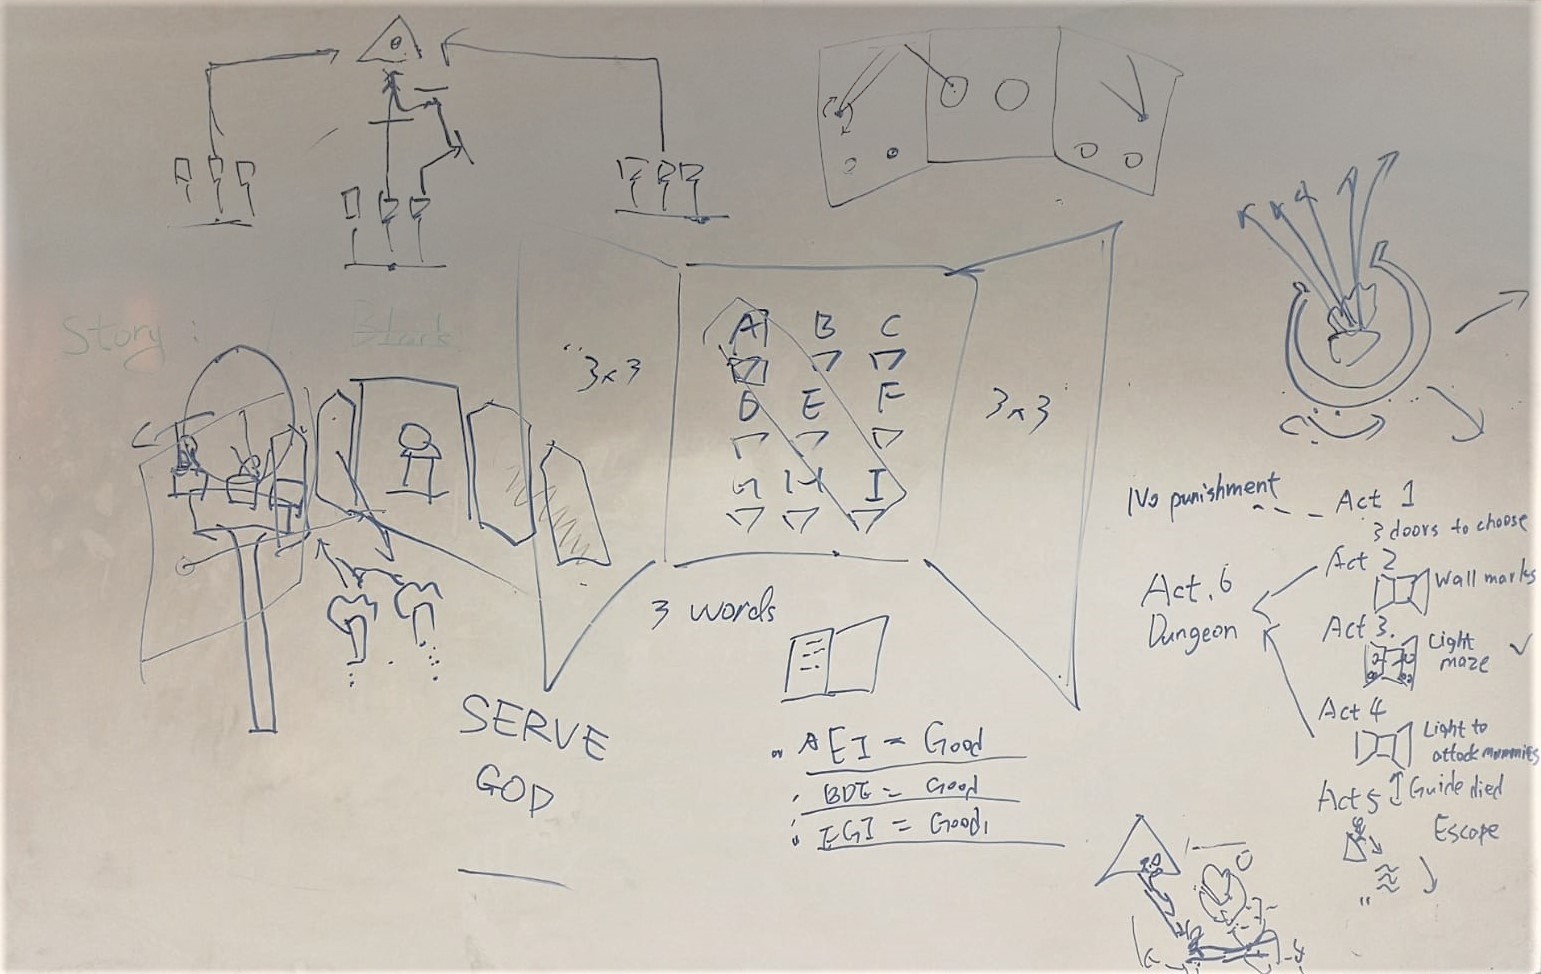 Story :
3x3
A B C
D E F
G H I
3x3
3 words
SERVE
GOD
AEI = Good
BDE = Good
= Good
No punishment
Act 1
3 doors to choose
Act 2
Wall marks
Act 3.
Light
maze
Act 4
Light to
attack mummies
Act 5
Guide died
Escape
Act. 6
Dungeon